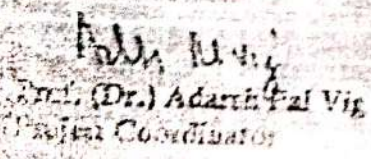 Prof. (Dr.) Adarsh Pal Vig
Project Coordinator